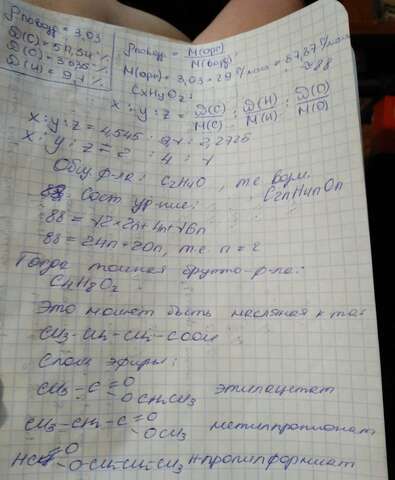 ρвозд = 3,03
D(C) = 54,54%
D(O) =
D(H) = 9,1%
ρвозд = M(орг) / M(возд)
M(орг) = 3,03 · 29 г/моль = 87,87 г/моль
≈ 88
CxHyOz:
x : y : z = D(C)/M(C) : D(H)/M(H) : D(O)/M(O)
x : y : z = 4,545 : 9,1 : 2,2725
x : y : z = 2 : 4 : 1
Общ. ф-ла: C2H4O, те форм.
C2nH4nOn
Сост ур-ние:
88 = 12·2n + 4n + 16n
88 = 24n + 20n, те n = 2
Тогда точная брутто-ф-ла:
C4H8O2
Это может быть масляная к-та:
CH3-CH2-CH2-COOH
Слож эфиры:
CH3-C=O
-OCH2CH3 этилацетат
CH3-CH2-C=O
-OCH3 метилпропионат
HC=O
-OCH2CH2-CH3 н-пропилформиат